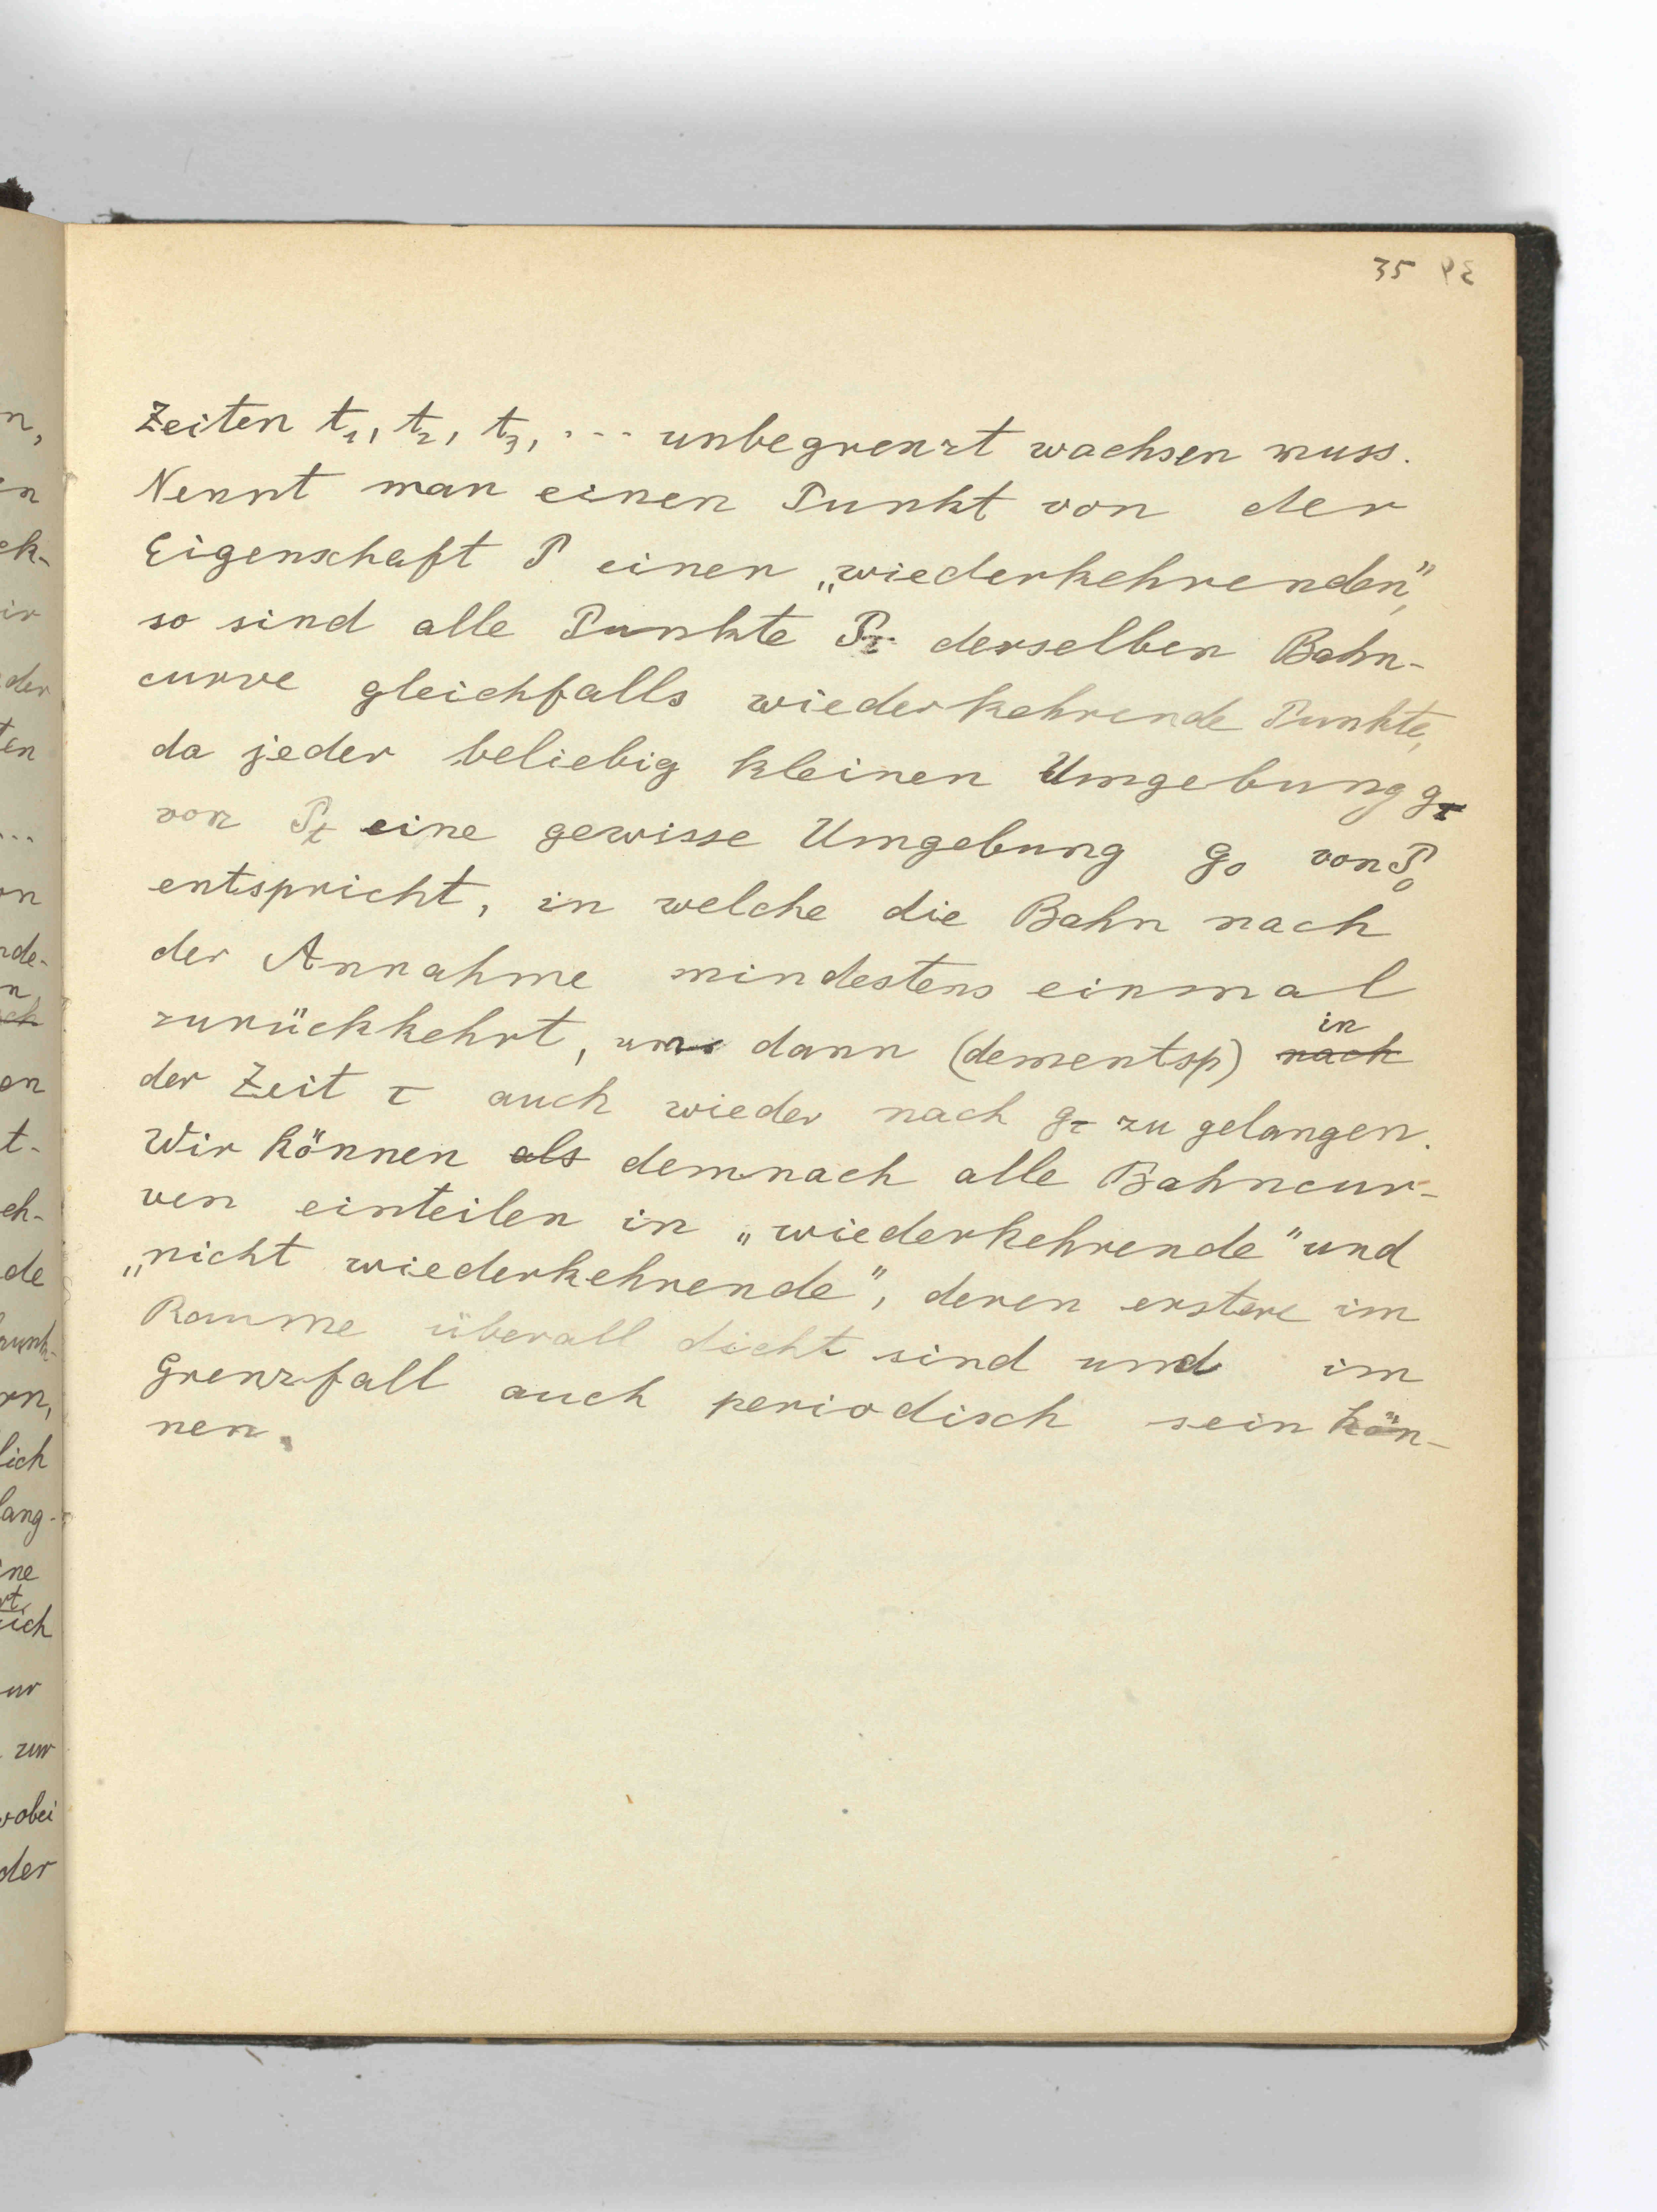 35
Zeiten t₁, t₂, t₃, ... unbegrenzt wachsen muss.
Nennt man einen Punkt von der
Eigenschaft P einen „wiederkehrenden”,
so sind alle Punkte Pτ derselben Bahn-
curve gleichfalls wiederkehrende Punkte,
da jeder beliebig kleinen Umgebung gτ
von Pτ eine gewisse Umgebung g₀ von P₀
entspricht, in welche die Bahn nach
der Annahme mindestens einmal
zurückkehrt, um dann (dementsp) in nach
der Zeit τ auch wieder nach gτ zu gelangen.
Wir können als demnach alle Bahncur-
ven einteilen in „wiederkehrende" und
„nicht wiederkehrende", deren erstere im
Raume überall dicht sind und im
Grenzfall auch periodisch sein kön-
nen.